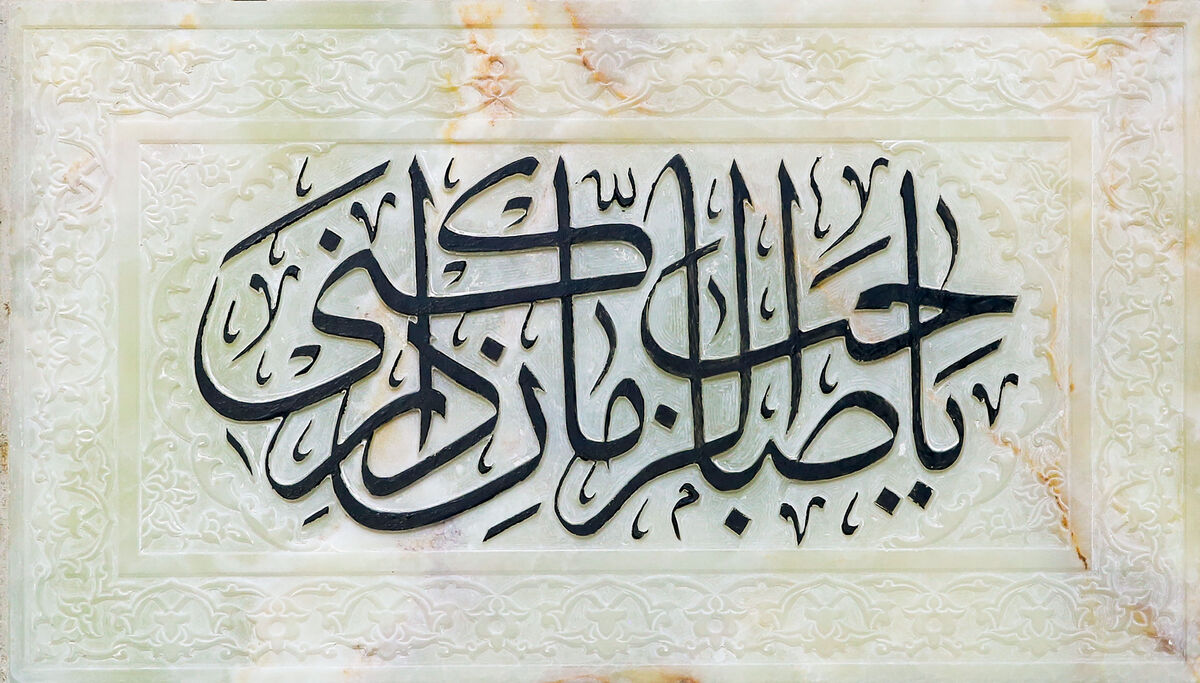 يا صاحب الزمان ادركني